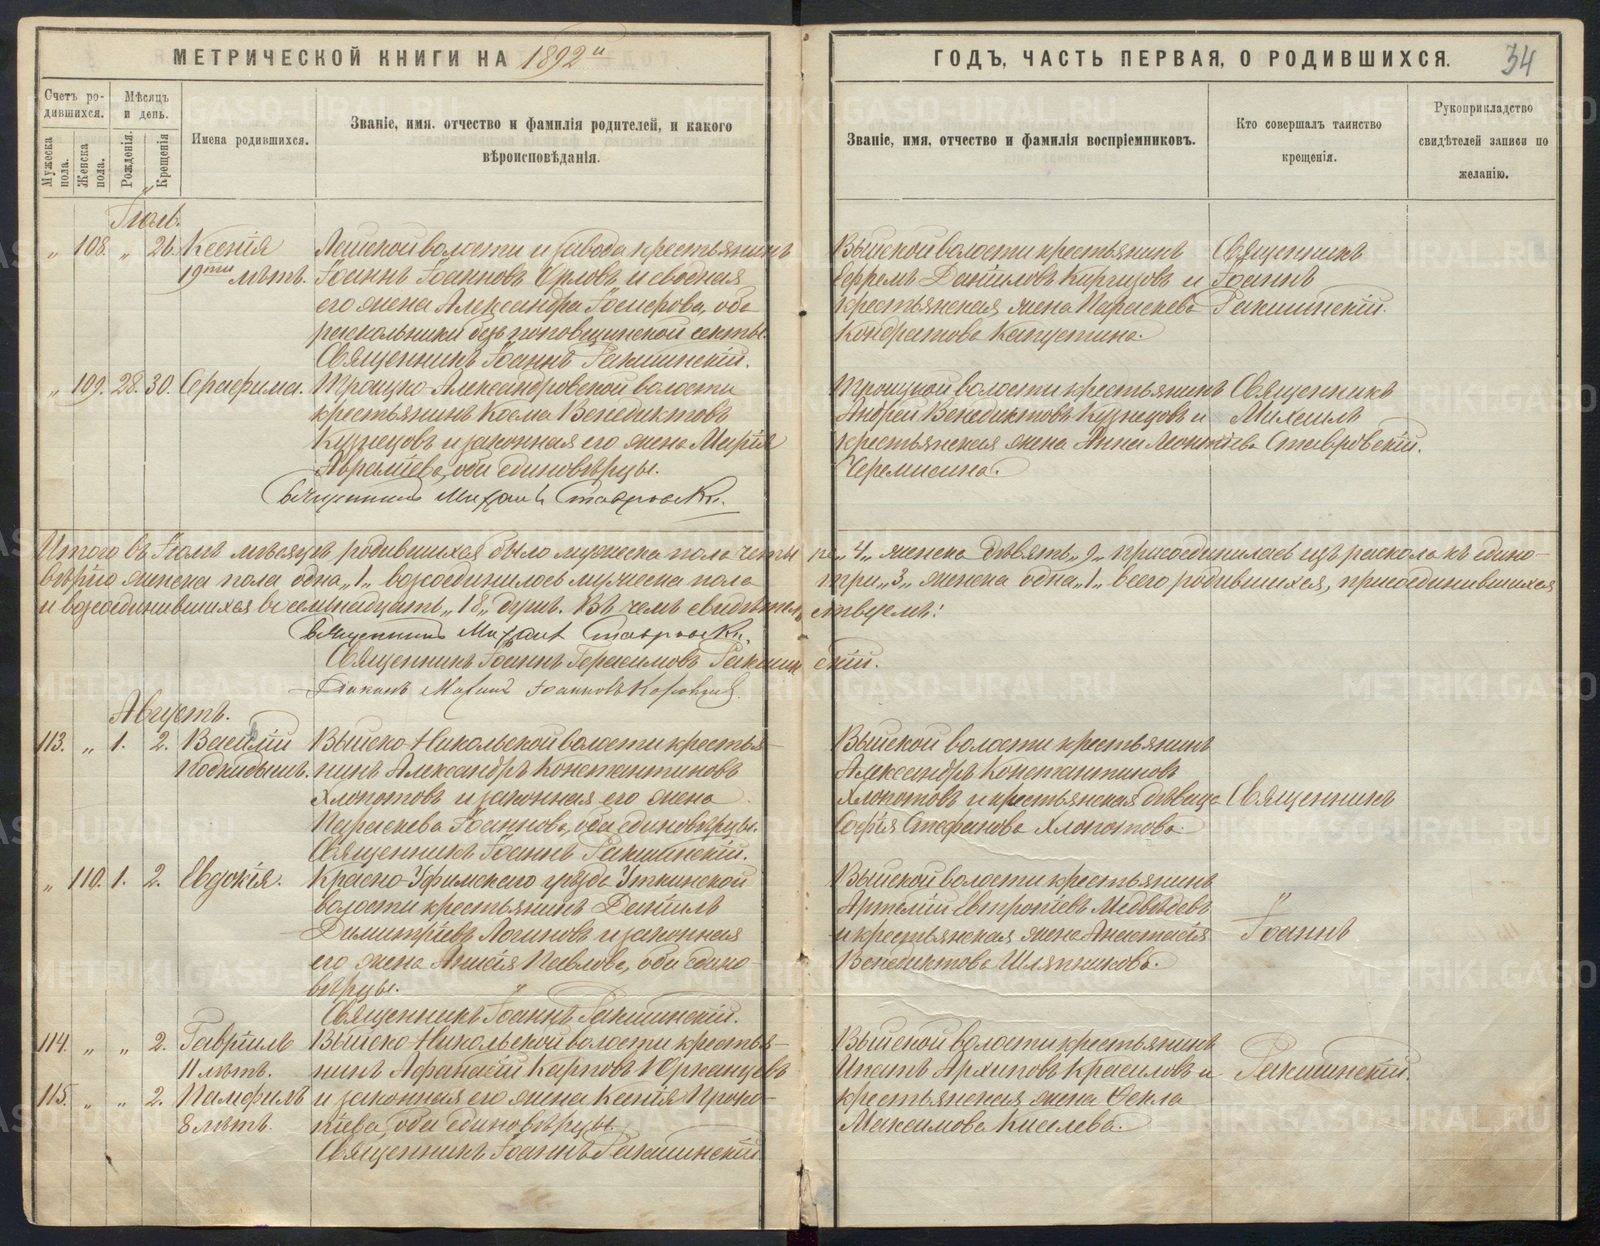 МЕТРИЧЕСКОЙ КНИГИ НА 1892й
ГОДЪ, ЧАСТЬ ПЕРВАЯ, О РОДИВШИХСЯ. 34
Счетъ ро-
дившихся.
Мужеска пола.
Женска пола.
Мѣсяцъ
и день.
Рожденія.
Крещенія
Имена родившихся.
Званіе, имя, отчество и фамилія родителей, и какого
вѣроисповѣданія.
Званіе, имя, отчество и фамилія воспріемниковъ.
Кто совершалъ таинство
крещенія.
Рукоприкладство
свидѣтелей записи по
желанію.
Іюль.
„ 108. „ 26. Ксенія
19ти лѣтъ.
волости и завода крестьянинъ
Іоаннъ Іоанновъ Орловъ и сводная
его жена Александра оба
раскольники безпоповщинской секты.
Священникъ Іоаннъ Ракшинскій.
Выйской волости крестьянинъ
Ефремъ Даніиловъ Киргизовъ и
крестьянская жена Параскева
Кондратова Капустина.
Священникъ
Іоаннъ
Ракшинскій.
„ 109. 28. 30. Серафима.
Троицко Александровской волости
крестьянинъ Косма Венедиктовъ
Кузнецовъ и законная его жена Марія
Авраміева, оба единовѣрцы.
Священникъ Михаилъ Ставровскій.
Троицкой волости крестьянинъ
Андрей Венедиктовъ Кузнецовъ и
крестьянская жена Анна
Черемисина.
Священникъ
Михаилъ
Ставровскій.
Итого въ Іюлѣ мѣсяцѣ родившихся было мужеска пола четыре „4„ женска девять „9„ присоединилось изъ раскола къ едино-
вѣрію женска пола одна „1„ возсоединилось мужеска пола три „3„ женска одна „1„ всего родившихся, присоединившихся
и возсоединившихся восемнадцать „18„ душъ. Въ чемъ свидѣтельствуемъ:
Священникъ Михаилъ Ставровскій.
Священникъ Іоаннъ Герасимовъ Ракшинскій.
Діаконъ Іоанновъ
Августъ.
113. „ 1. 2. Василій
подкидышъ.
Выйско-Никольской волости крестья-
нинъ Александръ Константиновъ
Хлопотовъ и законная его жена
Параскева Іоаннова, оба единовѣрцы.
Священникъ Іоаннъ Ракшинскій.
Выйской волости крестьянинъ
Александръ Константиновъ
Хлопотовъ и крестьянская дѣвица
Софія Стефанова Хлопотова.
Священникъ
„ 110. 1. 2. Евдокія.
Красно-Уфимскаго уѣзда Уткинской
волости крестьянинъ Даніилъ
Димитріевъ Логиновъ и законная
его жена Анисія Павлова, оба едино-
вѣрцы.
Священникъ Іоаннъ Ракшинскій.
Выйской волости крестьянинъ
Артемій Евтропіевъ Медвѣдевъ
и крестьянская жена Анастасія
Венедиктова Шляпникова.
Іоаннъ
114. „ „ 2. Гавріилъ
11 лѣтъ.
115. „ „ 2. Памфилъ
8 лѣтъ.
Выйско-Никольской волости крестья-
нинъ Афанасій Карповъ Юрканцевъ
и законная его жена Ксенія Проко-
піева оба единовѣрцы.
Священникъ Іоаннъ Ракшинскій.
Выйской волости крестьянинъ
Ипатъ Архиповъ Красиловъ и
крестьянская жена Фекла
Максимова Киселева.
Ракшинскій.
METRIKI.GASO-URAL.RU